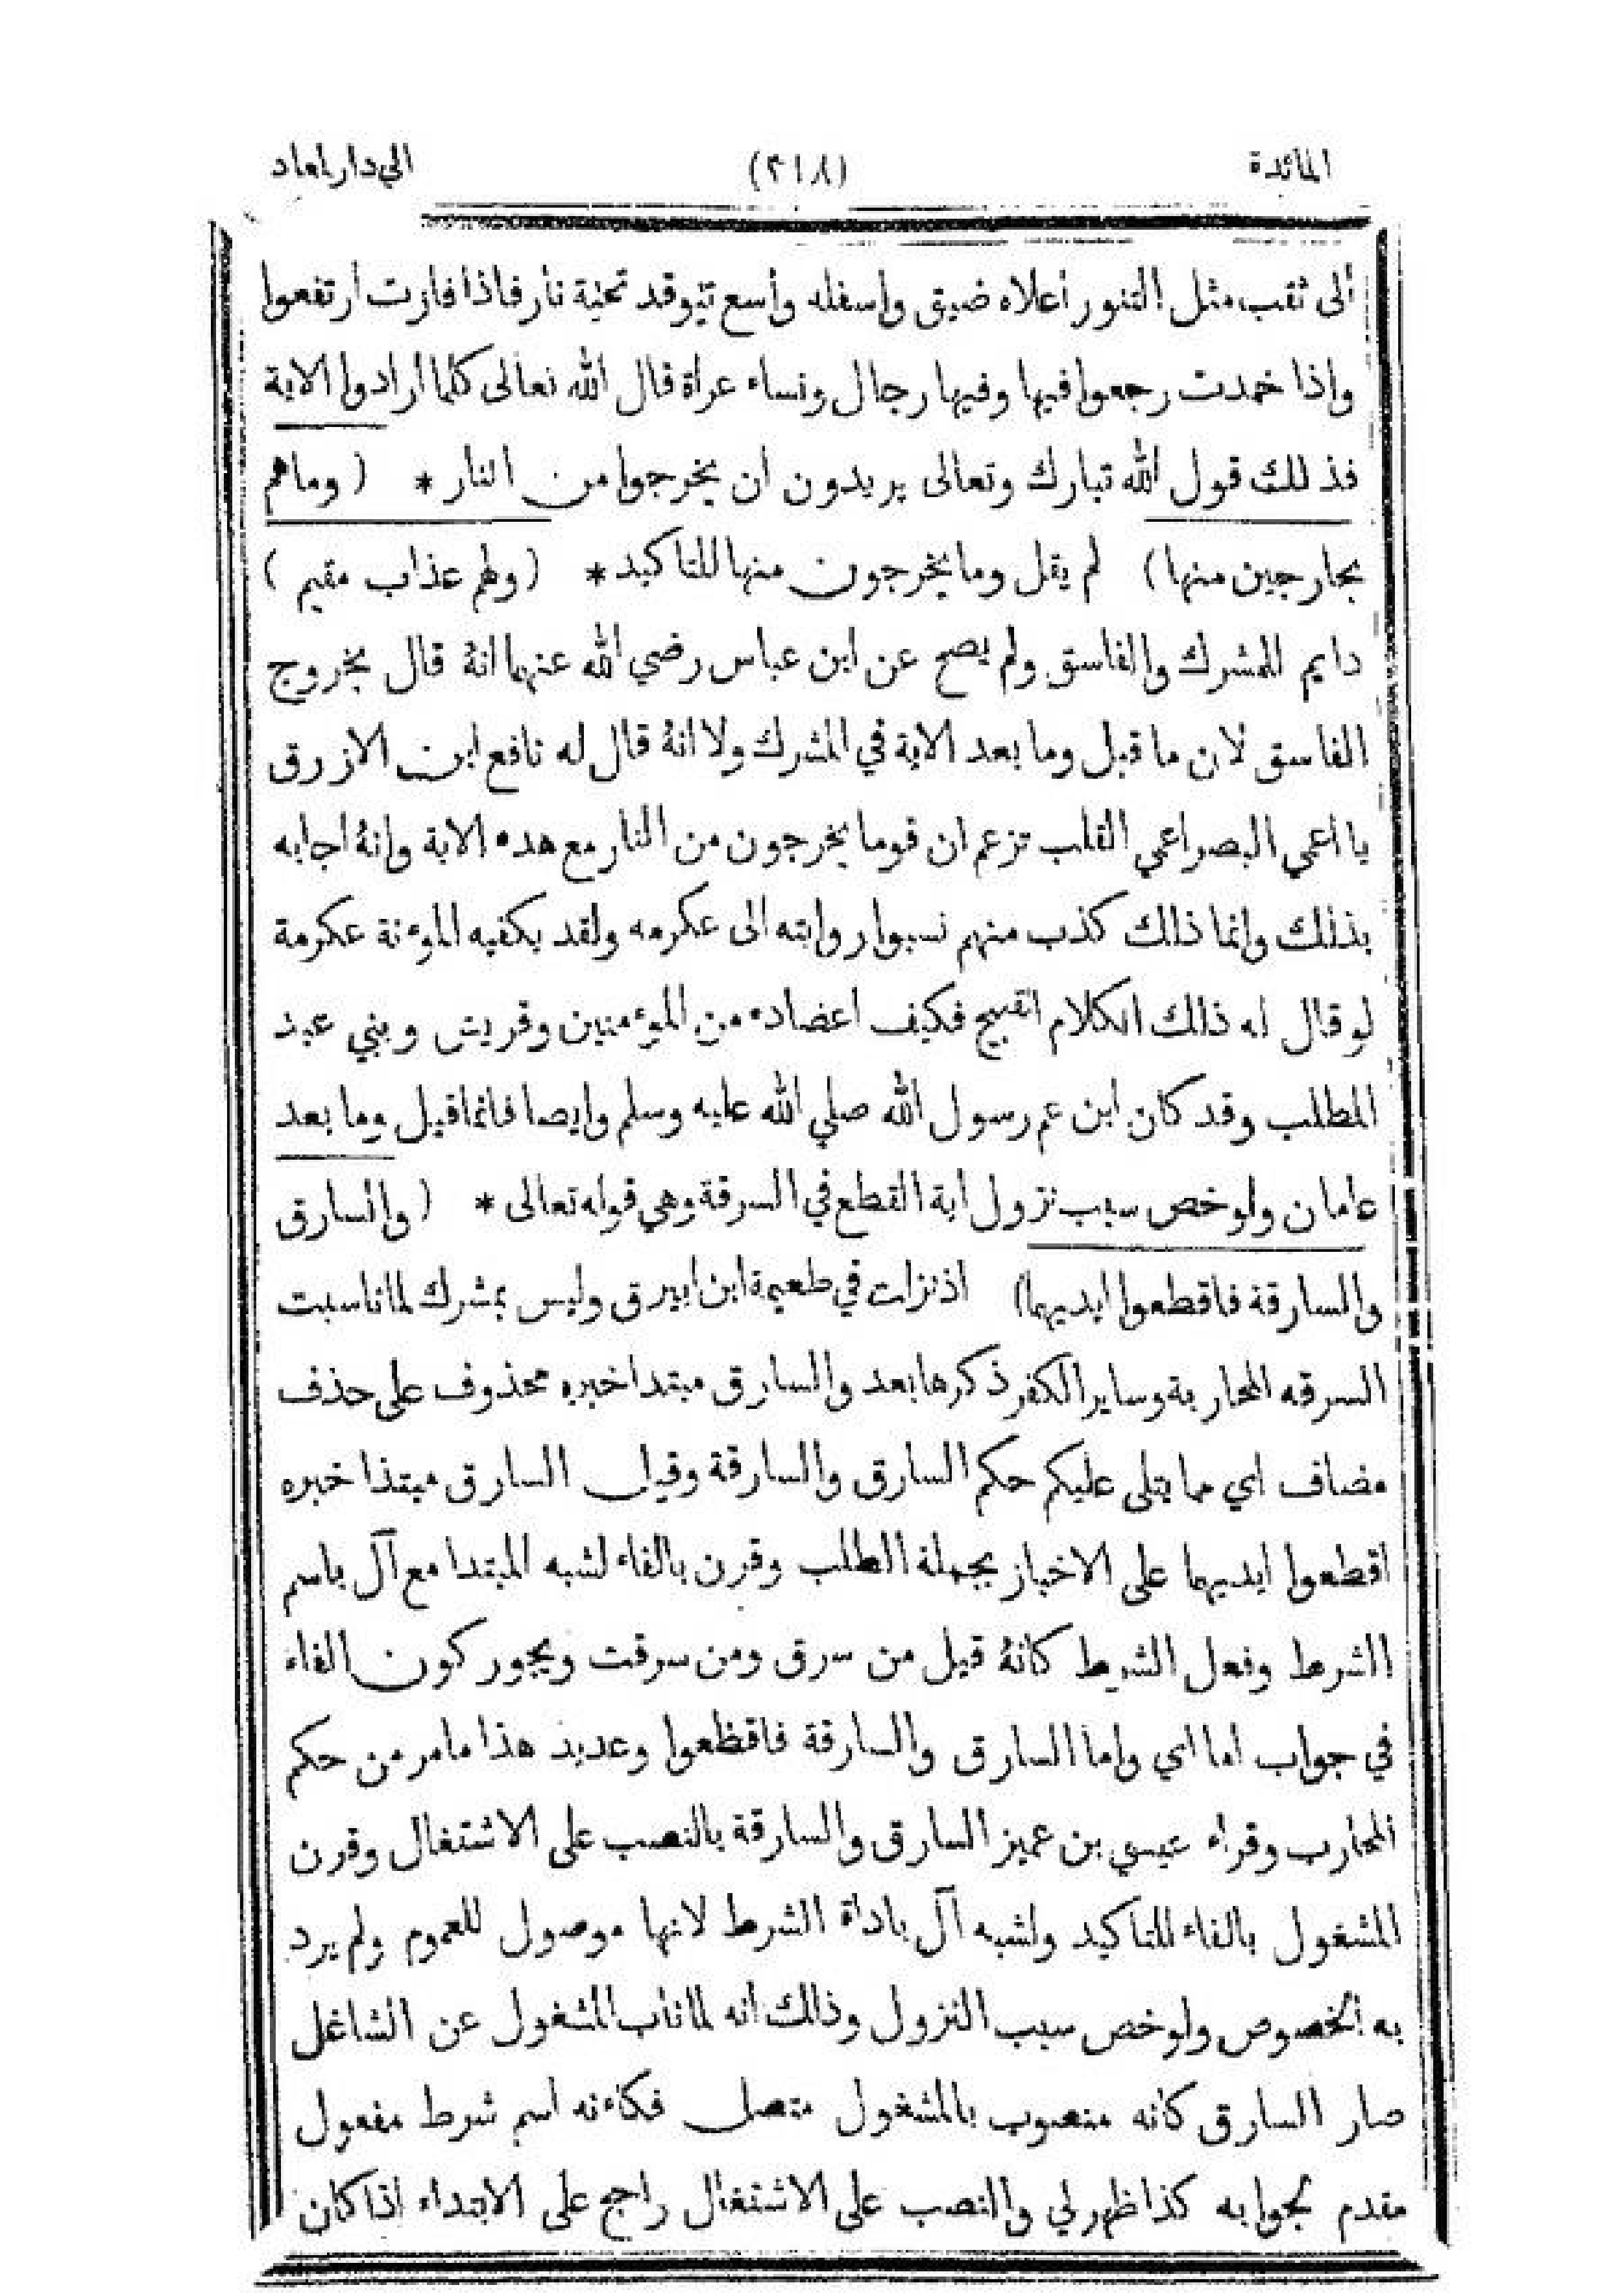 المائدة (٣١٨) الي دار المعاد
ألى ثقب مثل التنور أعلاه ضيق واسفله وأسع تيوقد تحتة نار فاذا فازت ارتفعوا
واذا خمدت رجعوا فيها وفيها رجال ونساء عراة قال الله تعالى كلما ارادوا الاية
فذلك قول الله تبارك وتعالى يريدون ان يخرجوا من النار * ( وما هم
بخارجين منها) لم يقل وما يخرجون منها للتاكيد * (ولهم عذاب مقيم )
دايم للمشرك والفاسق ولم يصح عن ابن عباس رضي الله عنهما انهُ قال بخروج
الفاسق لان ما قبل وما بعد الاية في المشرك ولا انهُ قال له نافع ابن الازرق
يا اعمي البصر اعمي القلب تزعم ان قوما يخرجون من النار مع هده الاية وانهُ اجابه
بذلك وانما ذالك كذب منهم نسبوا روايته الى عكرمه ولقد يكفيه الموءنة عكرمة
لو قال له ذالك الكلام القبيح فكيف اعضاده من الموءمنين وقريش وبني عبد
المطلب وقد كان ابن عم رسول الله صلي الله عليه وسلم وايصا فانما قيل وما بعد
عامان ولو خص سبب نزول اية القطع في السرقة وهي قوله تعالى * ( والسارق
والسارقة فاقطعوا ايديهما) اذ نزلت في طعيمة ابن ابيرق وليس بمشرك لما ناسبت
السرقه المحاربة وساير الكفر ذكرها بعد والسارق مبتدا خبره محذوف على حذف
مضاف اي مما يتلى عليكم حكم السارق والسارقة وقيل السارق مبتذا خبره
اقطعوا ايديهما على الاخباز بجملة الطلب وقرن بالفاء لشبه المبتدا مع آل باسم
الشرط وفعل الشرط كانهُ قيل من سرق ومن سرقت ويجور كون الفاء
في جواب اما اي واما السارق والسارقة فاقظعوا وعديد هذا مامر من حكم
المحارب وقراء عيسي بن عميز السارق والسارقة بالنصب على الاشتغال وقرن
المشغول بالفاء للتاكيد ولشبه آل باداة الشرط لانها موصول للعموم ولم يرد
به الخصوص ولو خص سبب النزول وذالك انه لما ناب المشغول عن الشاغل
صار السارق كانه منصوب بالمشغول متصل فكاءنه اسم شرط مفعول
مقدم لجوابه كذا ظهر لي والنصب على الاشتغال راجح على الابتداء اذا كان